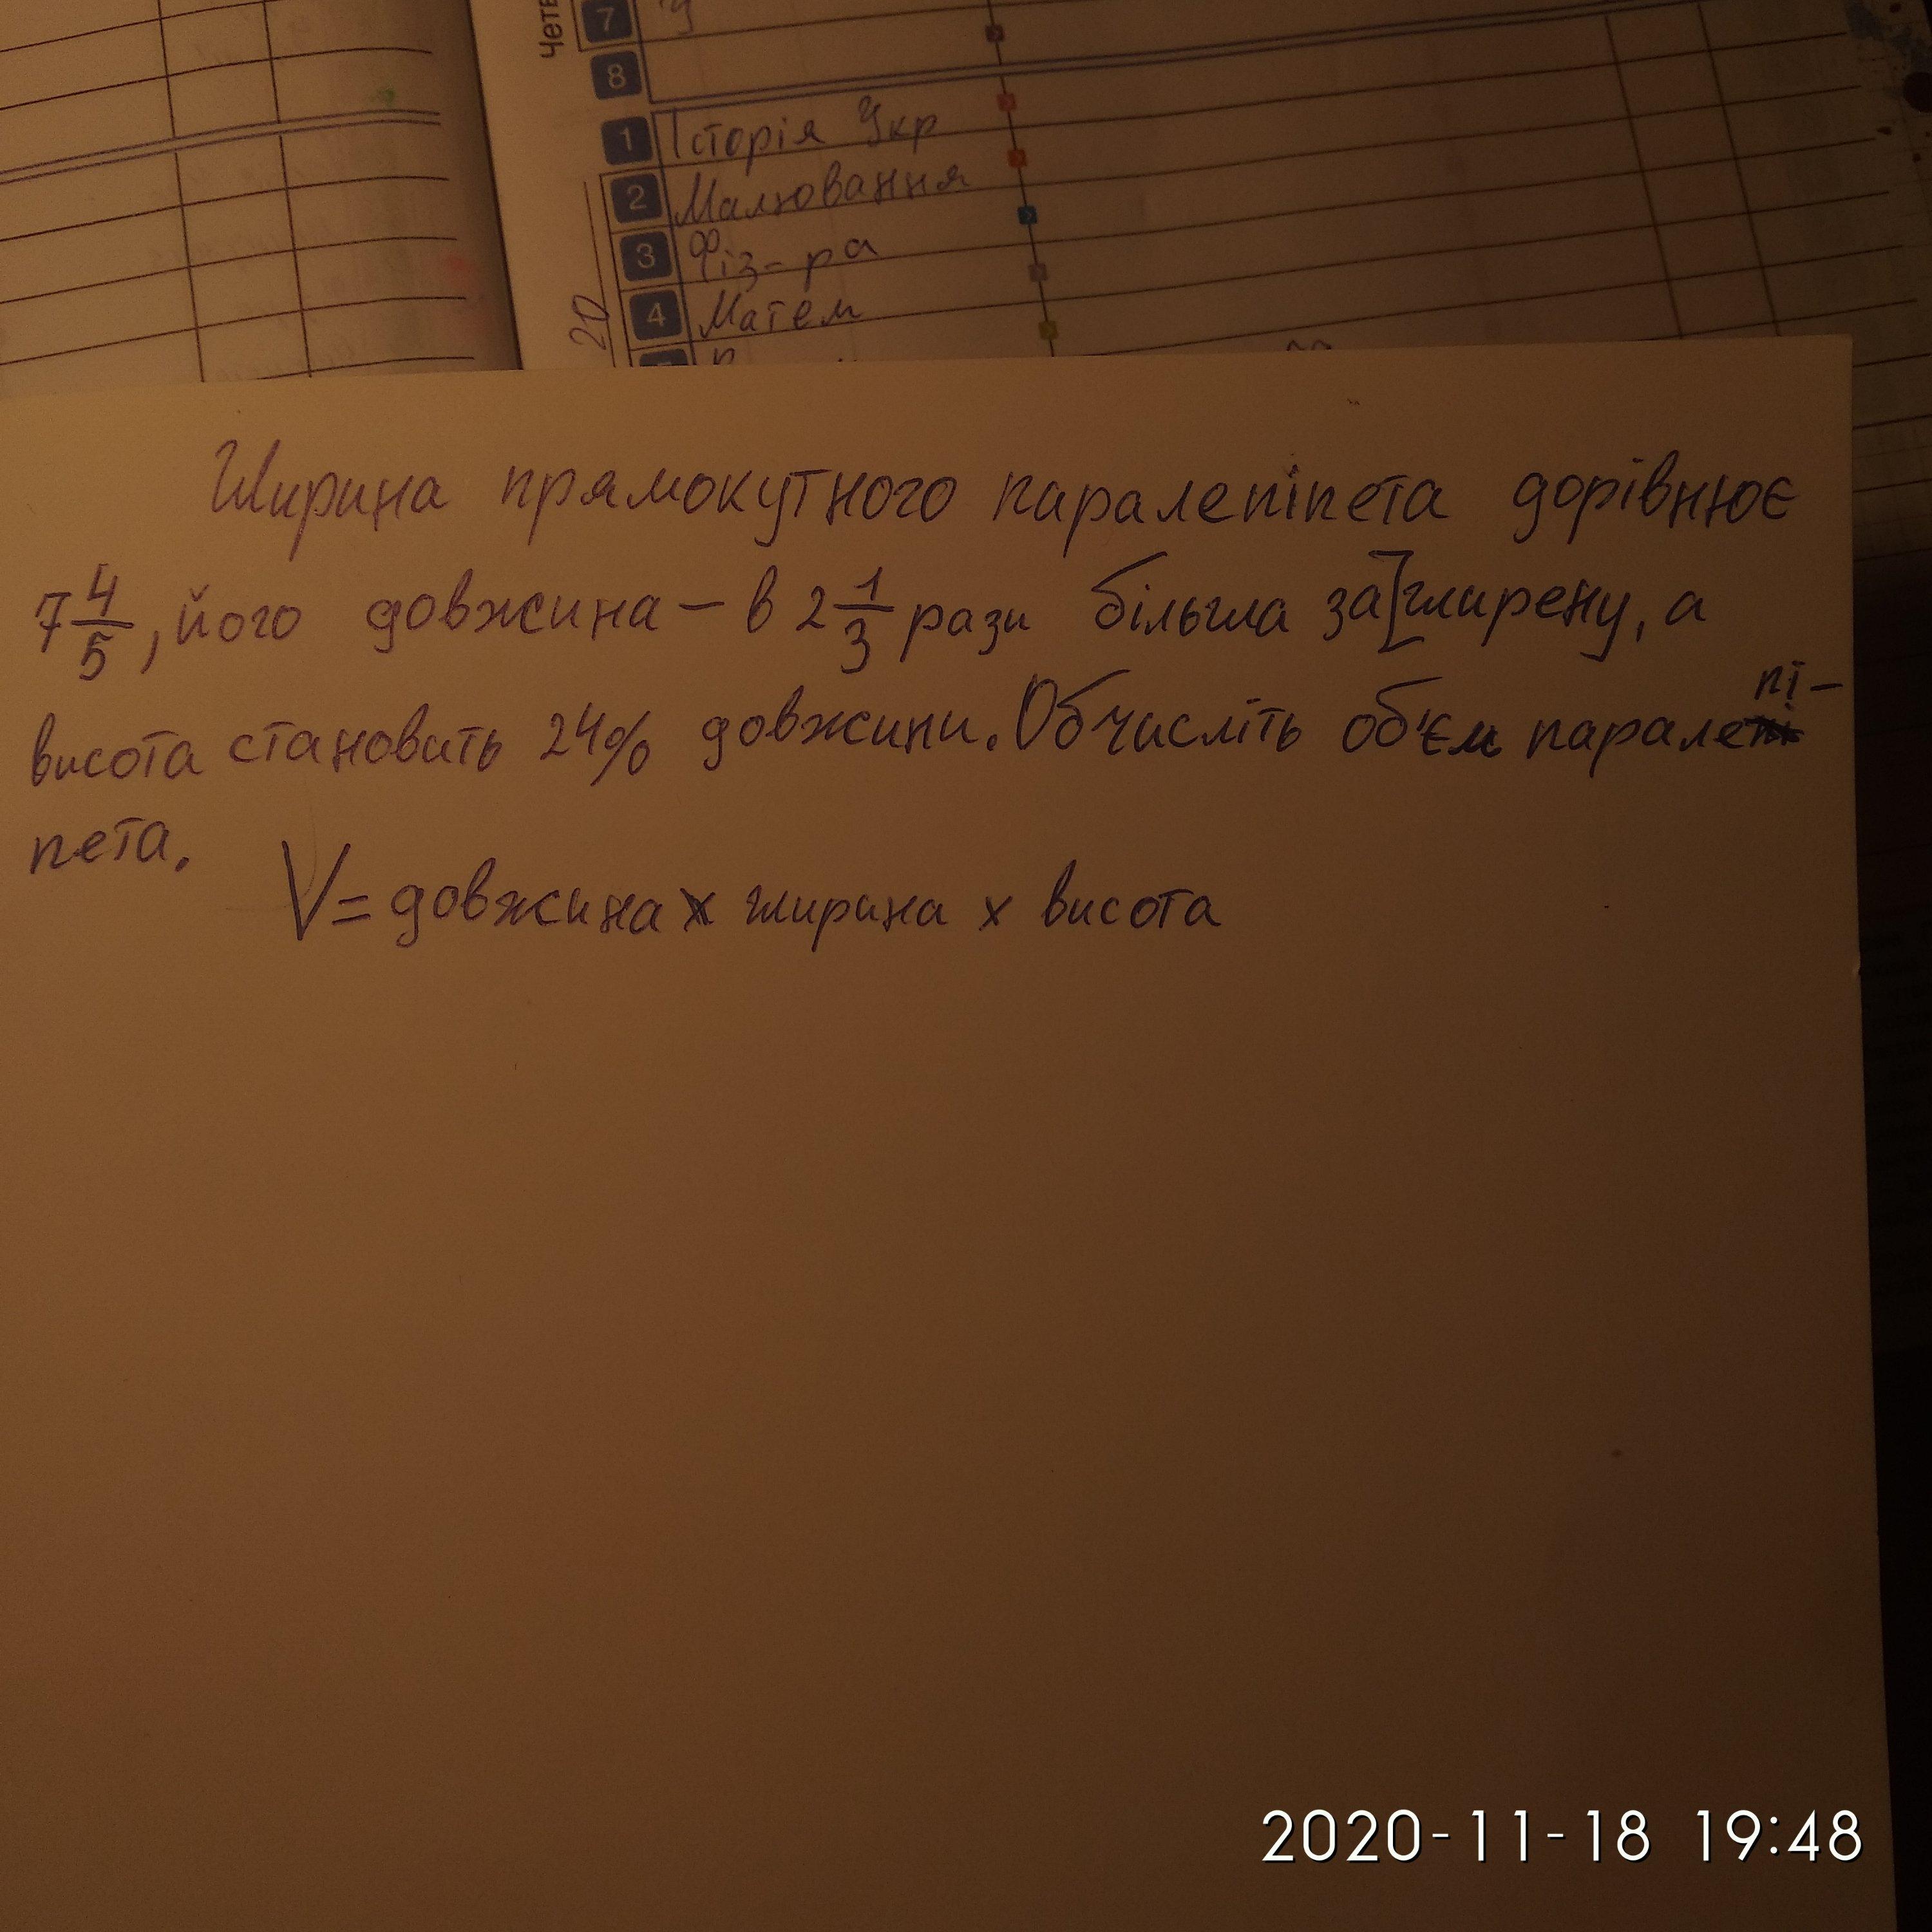 Четв
7 У
8
1 Історія Укр
2 Малювання
3 Фіз-ра
4 Матем
20
Ширина прямокутного паралепіпета дорівнює
7 4/5, його довжина – в 2 1/3 рази більша за ширену, а
висота становить 24% довжини. Обчисліть об'єм паралепі-
пета.
V = довжина х ширина х висота
2020-11-18 19:48